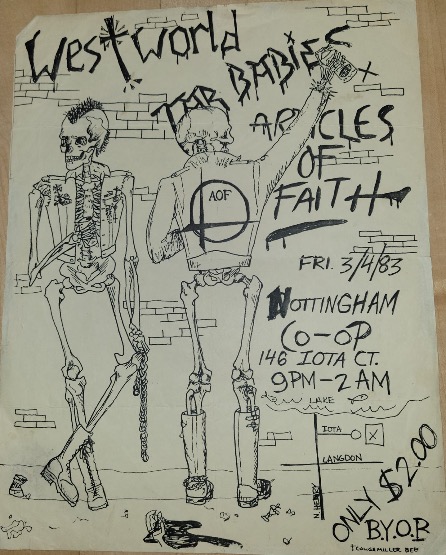 Westworld
TAR BABIES
ARTICLES
OF
FAITH
AOF
FRI. 3/4/83
NOTTINGHAM
CO-OP
146 IOTA CT.
9PM-2AM
LAKE
IOTA
X
LANGDON
N. HENRY
ONLY $2.00
B.Y.O.B